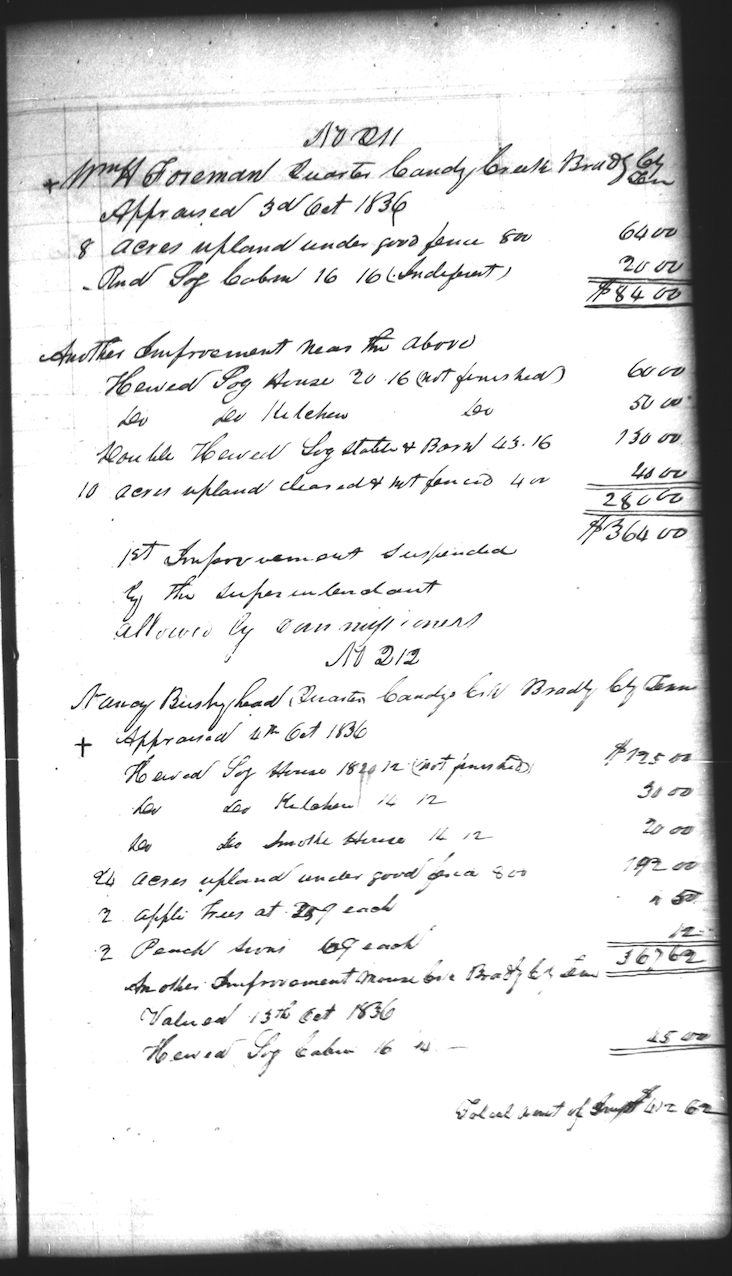 No 211
+ Wm H Foreman Quarter Candy Creek Bradly Cty
Ten
Appraised 3d Oct 1836
8 acres upland under good fence 800 6400
Rnd Log Cabin 16 16 (Indiferent) 2000
$8400
Another Improvement near the above
Hewed Log House 20.16 (not finished) 6000
Do Do Kitchen Do 5000
Double Hewed Log Stable & Barn 43.16 13000
10 acres upland cleared & not fenced 400 4000
28000
$36400
1st Improvement suspended
by the superintendant
allowed by commissioners
No 212
Nancy Bushyhead Quarter Candys Crk Bradly Cty Tenn
+ Appraised 4th Oct 1836
Hewed Log House 18 12 (not finished) $12500
Do Do Kitchen 14 12 3000
Do Do Smoke House 14 12 2000
24 acres upland under good fence 800 19200
2 apple trees at 25¢ each " 50
2 Peach 6¢ each 12
36762
Another Improvement Mouse Crk Bradly Cty Tenn
Valued 13th Oct 1836
Hewed Log Cabin 16 14 — 4500
Total amt of Impt $412 62